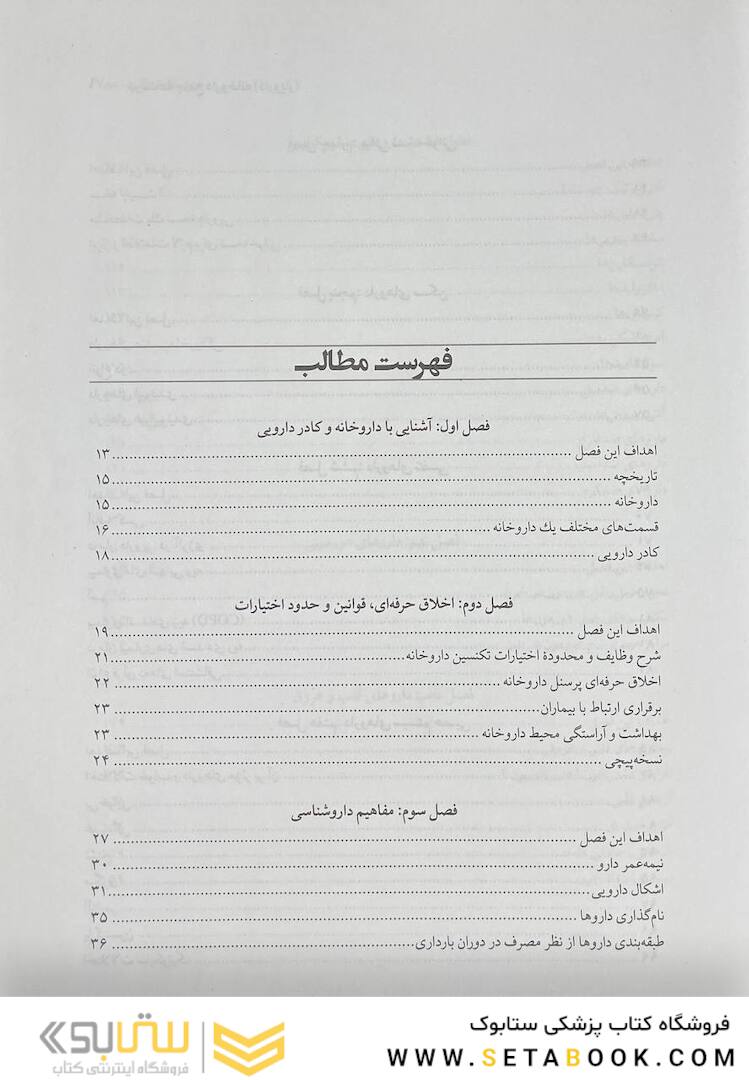 فهرست مطالب
فصل اول: آشنایی با داروخانه و کادر دارویی
اهداف این فصل ........ ۱۳
تاریخچه ........ ۱۵
داروخانه ........ ۱۵
قسمت‌های مختلف یک داروخانه ........ ۱۶
کادر دارویی ........ ۱۸
فصل دوم: اخلاق حرفه‌ای، قوانین و حدود اختیارات
اهداف این فصل ........ ۱۹
شرح وظایف و محدودهٔ اختیارات تکنسین داروخانه ........ ۲۱
اخلاق حرفه‌ای پرسنل داروخانه ........ ۲۲
برقراری ارتباط با بیماران ........ ۲۳
بهداشت و آراستگی محیط داروخانه ........ ۲۳
نسخه‌پیچی ........ ۲۴
فصل سوم: مفاهیم داروشناسی
اهداف این فصل ........ ۲۷
نیمه‌عمر دارو ........ ۳۰
اشکال دارویی ........ ۳۱
نام‌گذاری داروها ........ ۳۵
طبقه‌بندی داروها از نظر مصرف در دوران بارداری ........ ۳۶
فروشگاه کتاب پزشکی ستابوک
WWW.SETABOOK.COM
ستابوک
فروشگاه اینترنتی کتاب